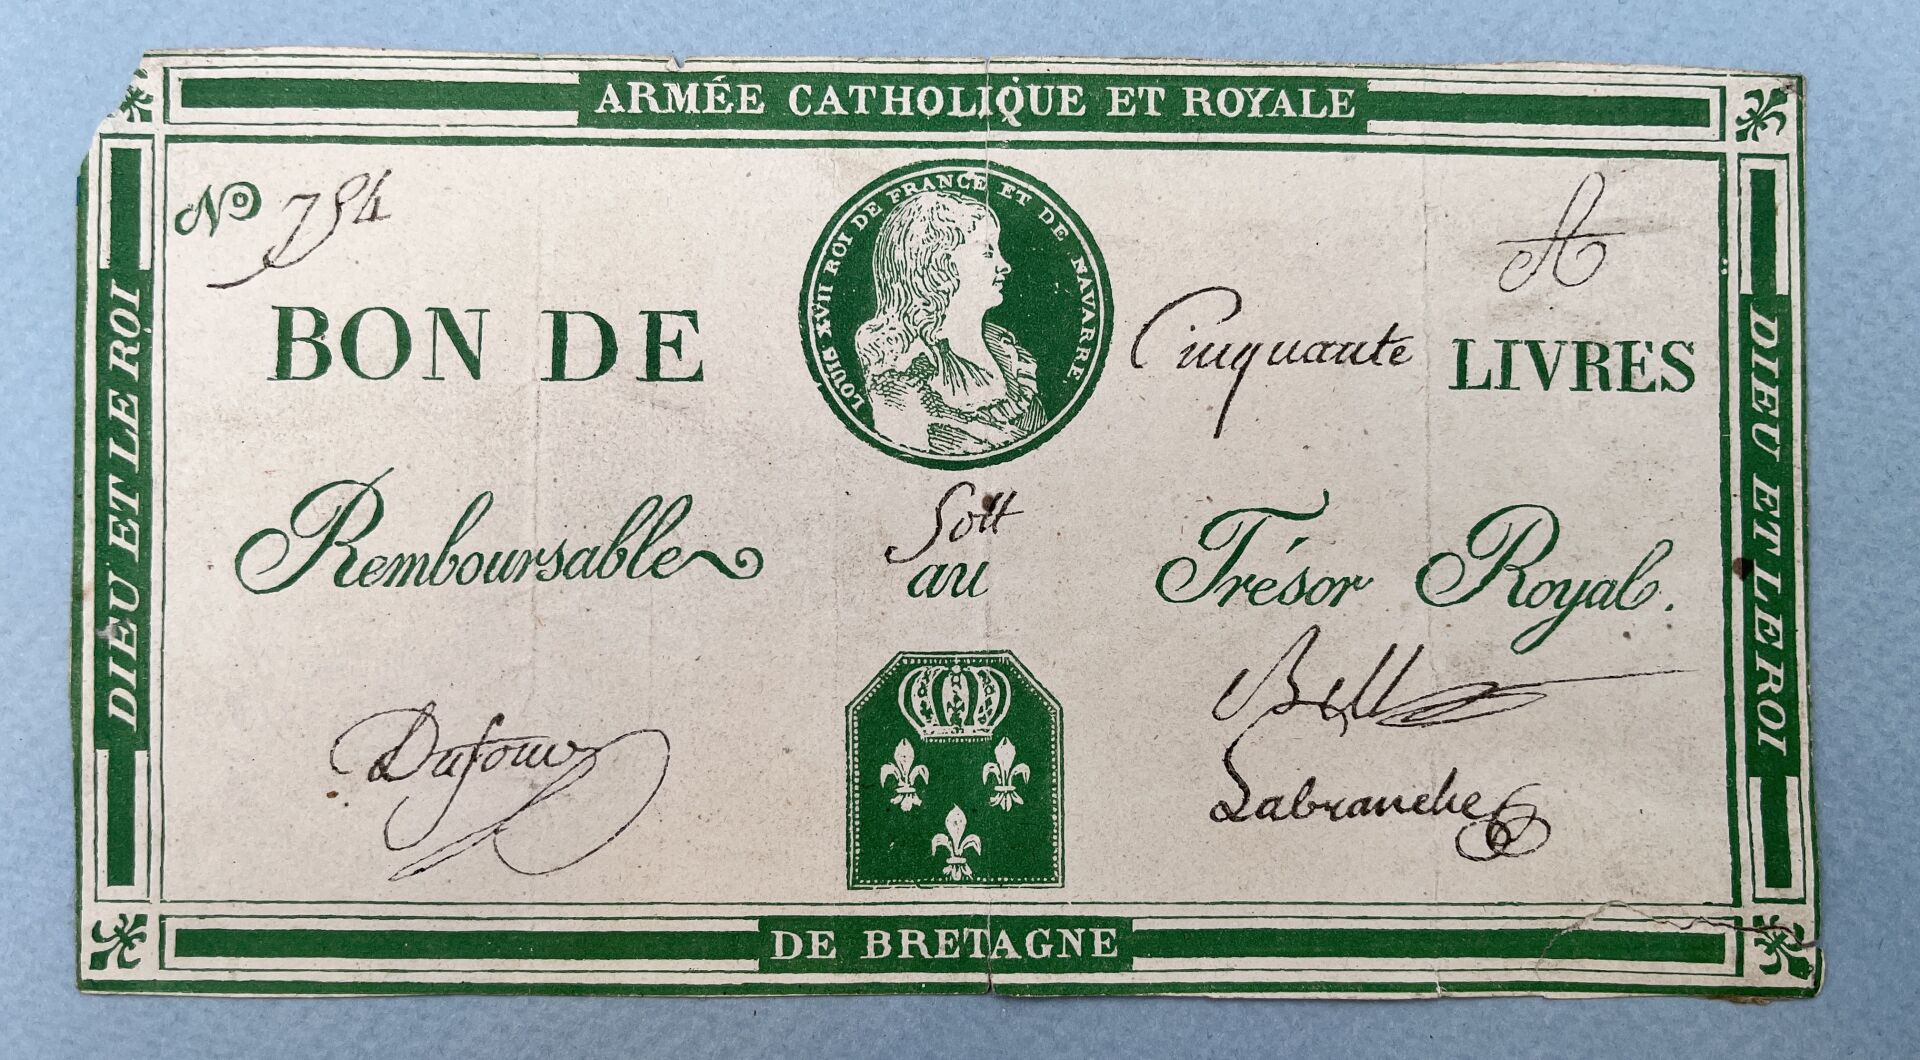 ARMÉE CATHOLIQUE ET ROYALE
No 794
A
LOUIS XVII ROI DE FRANCE ET DE NAVARRE.
BON DE Cinquante LIVRES
50tt
Remboursable au Trésor Royal.
Dufour
Bell
Labranche
DIEU ET LE ROI
DIEU ET LE ROI
DE BRETAGNE